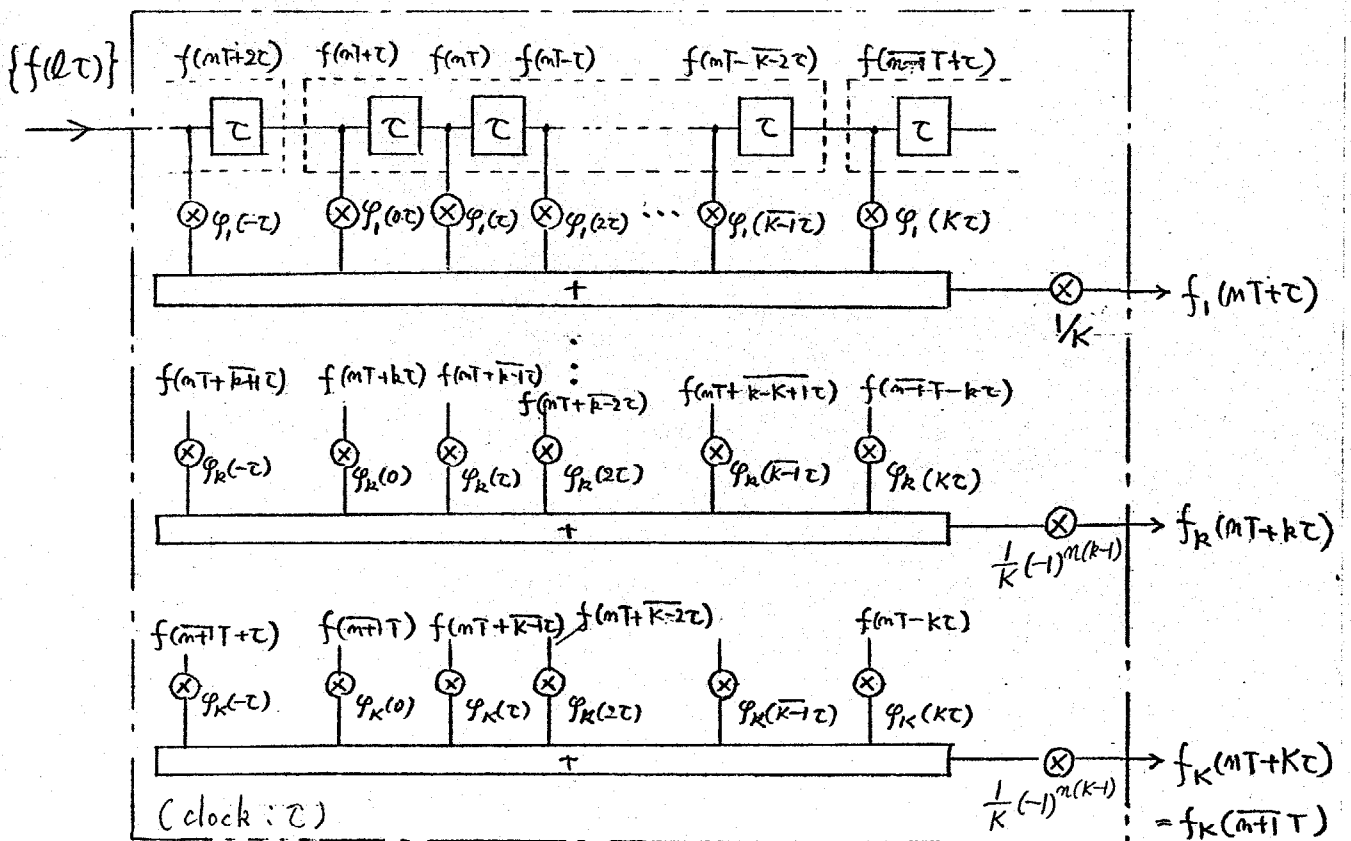 {f(lτ)}
f(nT+2τ) f(nT+τ) f(nT) f(nT-τ) f(nT-\overline{K-2}τ) f(\overline{n-1}T+τ)
τ τ τ τ τ
φ₁(-τ) φ₁(0τ) φ₁(τ) φ₁(2τ) ... φ₁(\overline{K-1}τ) φ₁(Kτ)
+
1/K
f₁(nT+τ)
f(nT+\overline{k+1}τ) f(nT+kτ) f(nT+\overline{k-1}τ) f(nT+\overline{k-2}τ) f(nT+\overline{k-K+1}τ) f(\overline{n-1}T-kτ)
φₖ(-τ) φₖ(0) φₖ(τ) φₖ(2τ) φₖ(\overline{K-1}τ) φₖ(Kτ)
+
1/K (-1)^{n(k-1)}
fₖ(nT+kτ)
f(\overline{n+1}T+τ) f(\overline{n+1}T) f(nT+\overline{K-1}τ) f(nT+\overline{K-2}τ) f(nT-Kτ)
φ_K(-τ) φ_K(0) φ_K(τ) φ_K(2τ) φ_K(\overline{K-1}τ) φ_K(Kτ)
+
1/K (-1)^{n(K-1)}
f_K(nT+Kτ)
= f_K(\overline{n+1}T)
(clock : τ)